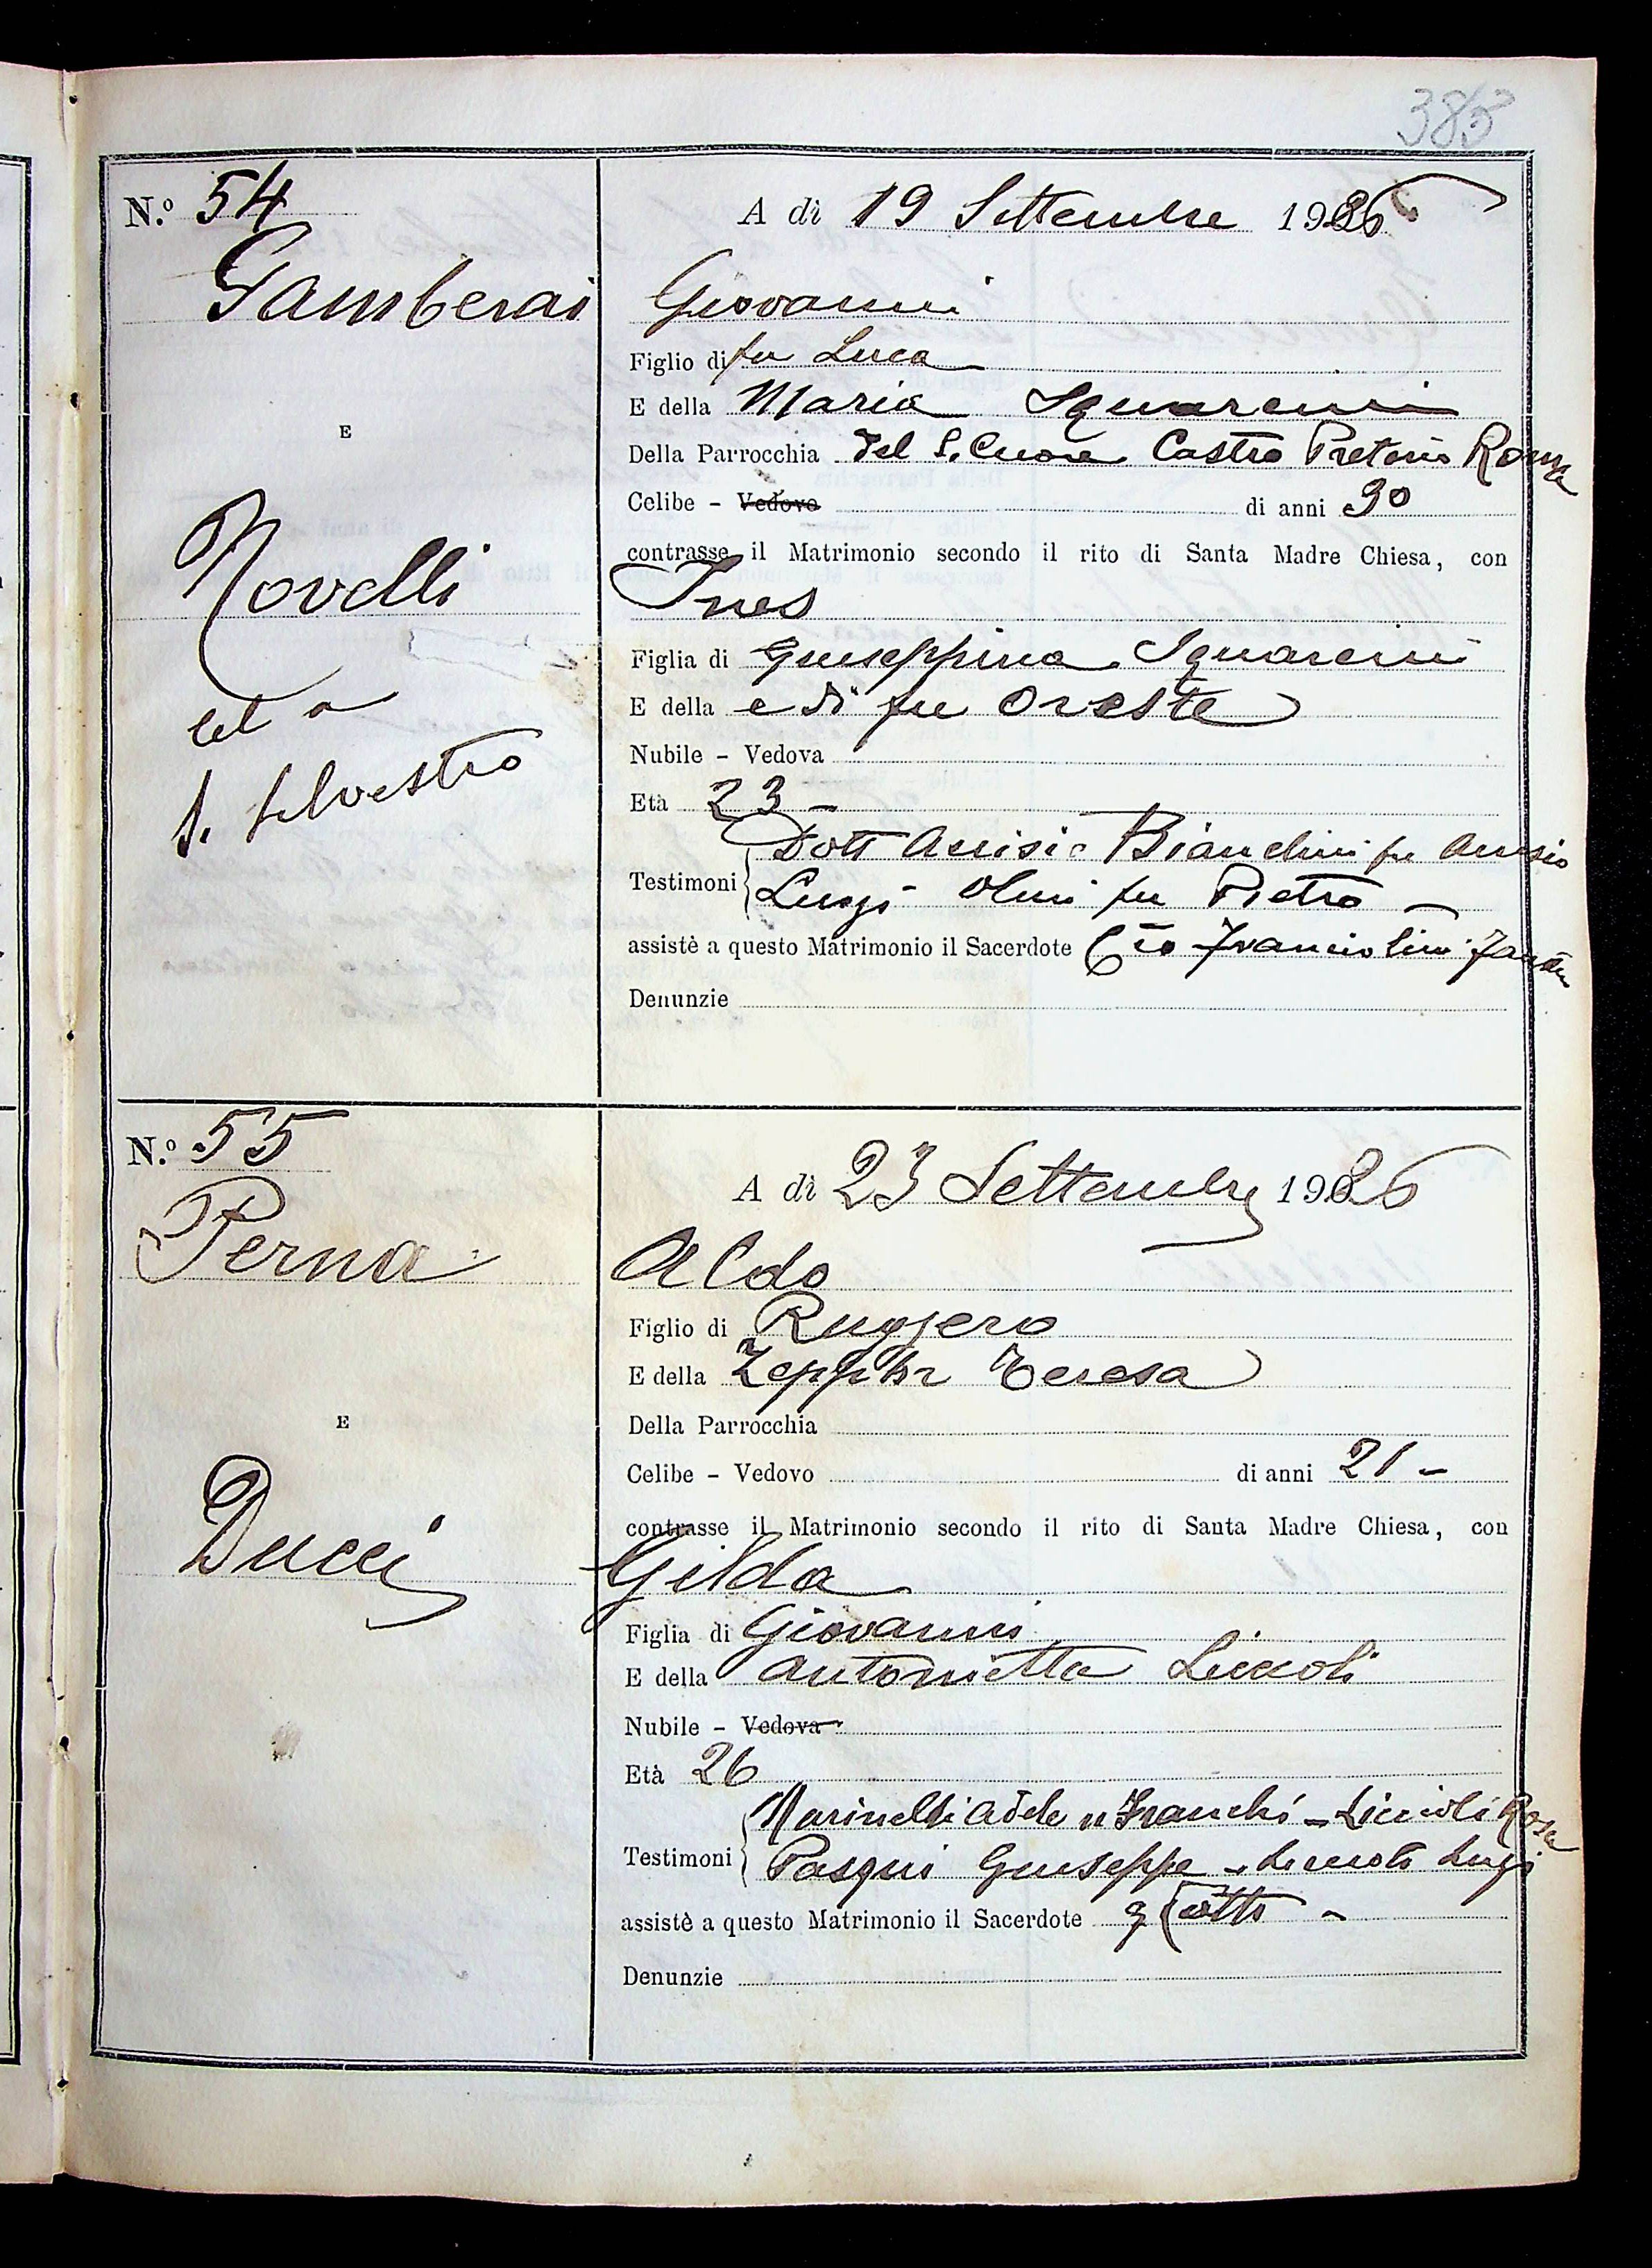 385
N.º 54
A dì 19 Settembre 1926
Gamberai
Giovanni
Figlio di fu Luca
E della Maria Squarcini
E
Della Parrocchia del S. Cuore Castro Pretorio Roma
Celibe - Vedovo di anni 30
contrasse il Matrimonio secondo il rito di Santa Madre Chiesa, con
Novelli
Ines
Figlia di Giuseppina Squarcini
E della e di fu Oreste
cel a
Nubile - Vedova
S. Silvestro
Età 23 -
Dott Bianchini fu
Testimoni
Luigi Olmi fu Pietro -
assistè a questo Matrimonio il Sacerdote
Denunzie
N.º 55
A dì 23 Settembre 1926
Perna
Aldo
Figlio di Ruggero
E della Teresa
E
Della Parrocchia
Celibe - Vedovo di anni 21 -
contrasse il Matrimonio secondo il rito di Santa Madre Chiesa, con
Ducci
Gilda
Figlia di Giovanni
E della Antonietta Liccioli
Nubile - Vedova
Età 26
Marinelli Adele n Franchi - Liccioli Rosa
Testimoni
Pasqui Giuseppe - Liccioli Luigi
assistè a questo Matrimonio il Sacerdote
Denunzie